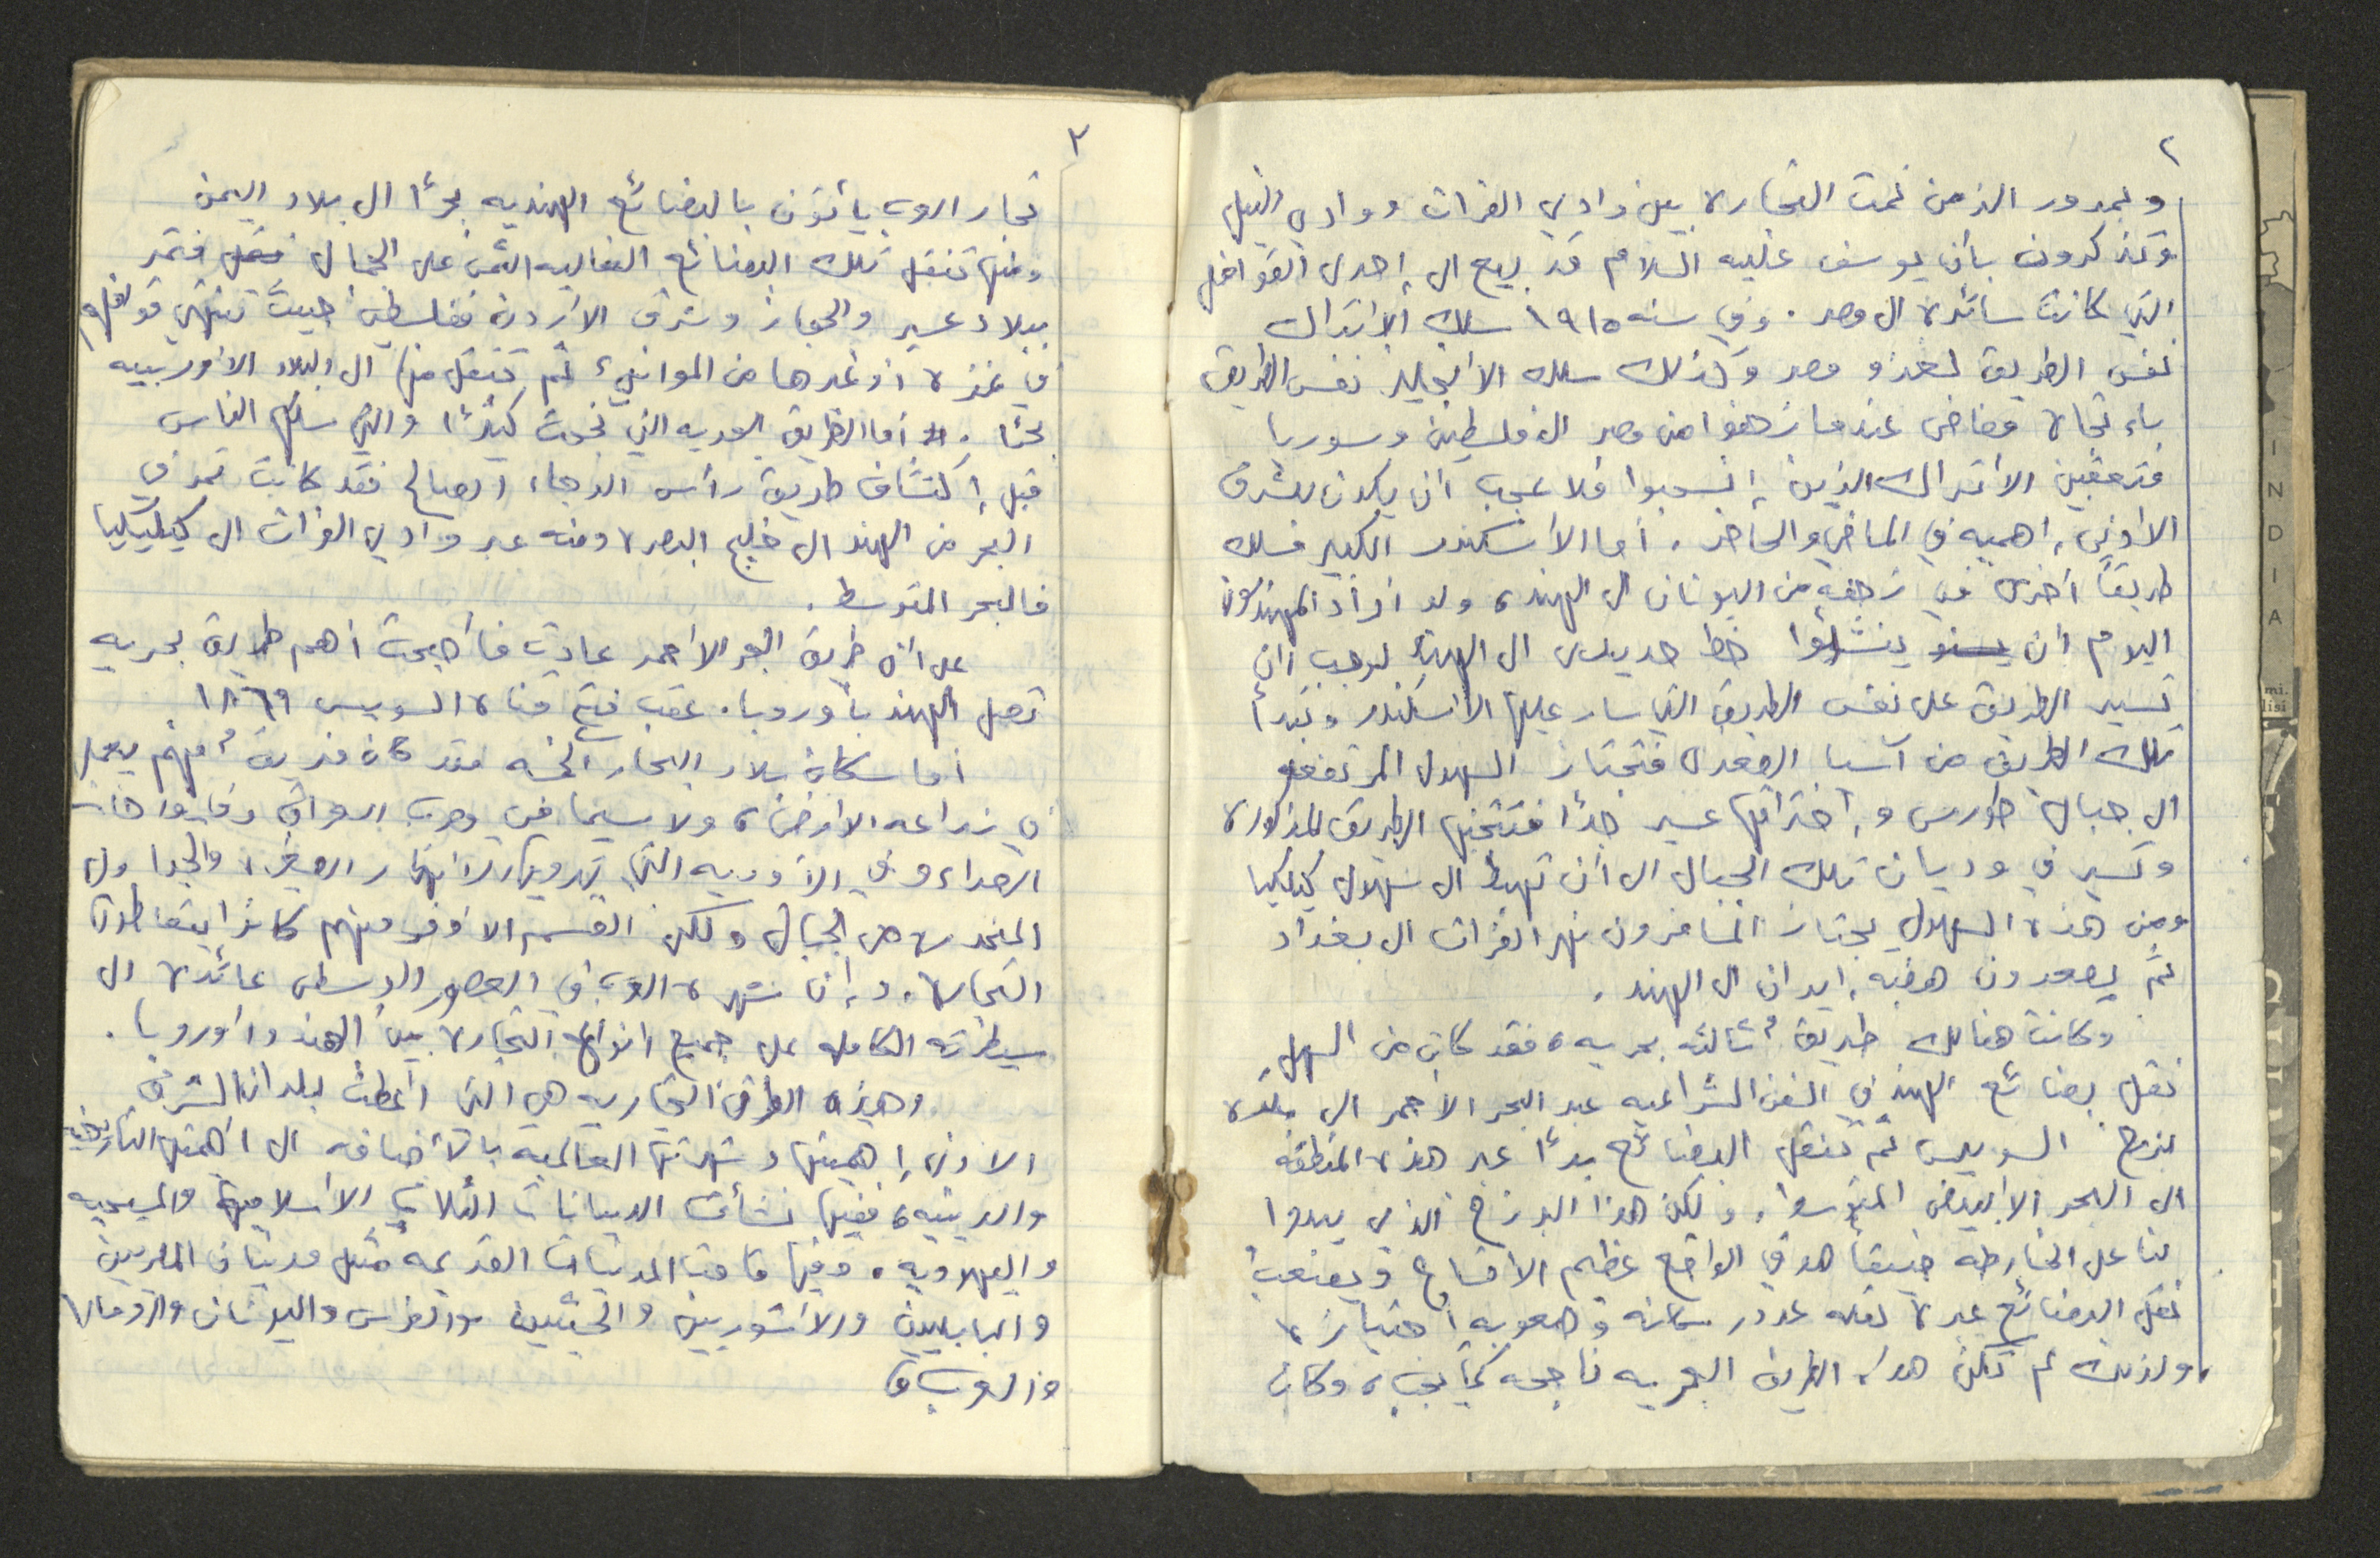 ٢
وبمرور الزمن نمت التجاره بين وادي الفرات ووادي النيل
وتذكرون بأن يوسف عليه السلام قد بيع الى إحدى القوافل
التي كانت سائره الى مصر. وفي سنه ١٩١٥ سلك الأتراك
نفس الطريق لغزو مصر وكذلك سلك الأنجليز نفس الطريق
بإتجاه معاض عندما زحفوا من مصر الى فلسطين وسوريا
متعقبين الأتراك الذين إنسحبوا فلا عجب ان يكون للشرق
الأدنى اهميه في الماضي والحاضر. أما الأسكندر الكبير فسلك
طريقاً أخرى في زحفه من اليونان الى الهند، ولو أراد المهندسون
اليوم أن ينشئوا خط حديدي الى الهند لوجب ان
تسير الطريق على نفس الطريق التي سار عليها الأسكندر وتبدأ
تلك الطريق من آسيا الصغرى فتجتاز السهول المرتفعه
الى جبال طورس وإختراقها عسير جداً فتتجنبها الطريق المذكوره
وتسير في وديان تلك الجبال الى أن تهبط الى سهول كيليكيا
ومن هذه السهول يجتاز المسافرون نهر الفرات الى بغداد
ثم يصعدون هضبه ايران الى الهند.
وكانت هنالك طريقٌ ثالثه بحريه، فقد كان من السهل
نقل بضائع الهند في السفن الشراعيه عبر البحر الأحمر الى
برزخ السويس ثم تنقل البضائع براً عبر هذه المنطقه
الى البحر الأبيض المتوسط. ولكن هذا البرزخ الذي يبدوا
لنا على الخارطه ضيقاً هو في الواقع عظيم الاتساع ويصعب
نقل البضائع عبره لقله عدد سكانه وصعوبه اجتيازه
ولذلك لم تكن هذه الطريق البحريه ناجحه كما يجب، وكان
٣
تجار العرب يأتون بالبضائع الهنديه بحراً الى بلاد اليمن
ومنها تنقل تلك البضائع الغاليه الثمن على الجمال فتمر
ببلاد عسير والحجاز وشرق الأردن ففلسطين حيث تنتهي قوافلهم
في غزه أو غيرها من الموانيء ثم تنقل منها الى البلاد الأوربيه
بحراً. أما الطريق البحريه التي نجحت كثيراً والتي سلكها الناس
قبل إكتشاف طريق رأس الرجاء الصالح فقد كانت تمر في
البحر من الهند الى خليج البصره ومنه عبر وادي الفرات الى كيليكيا
فالبحر المتوسط.
على أن طريق البحر الأحمر عادت فأصبحت أهم طريق بحريه
تصل الهند بأوروبا. عقب فتح قناه السويس ١٨٦٩.
أما سكان بلاد البحار الخمسه فقد كان فريقٌ منهم يعمل
في زراعه الأرض، ولا سيما في مصر والعراق وفي واحات
الصحراء وفي الأوديه التي ترويها الأنهار الصغيره والجداول
المنحدره من الجبال ولكن القسم الأوفر منهم كانوا يتعاطون
التجاره. وإن شهره العرب في العصور الوسطى عائده الى
سيطرته الكامله على جميع انواع التجاره بين الهند وأوروبا.
وهذه الطرق التجاريه هي التي أعطت لبلدان الشرق
الأدنى اهميتها وشهرتها العالميه بالأضافه الى اهميتها التاريخيه
والدينيه، ففيها نشأت الديانات الثلاث الأسلاميه والمسيحيه
واليهوديه. وفيها قامت المدنيات القديمه مثل مدنيات المصريين
والبابليين والأشوريين والحثيين والفرس واليونان والرومان
والعرب